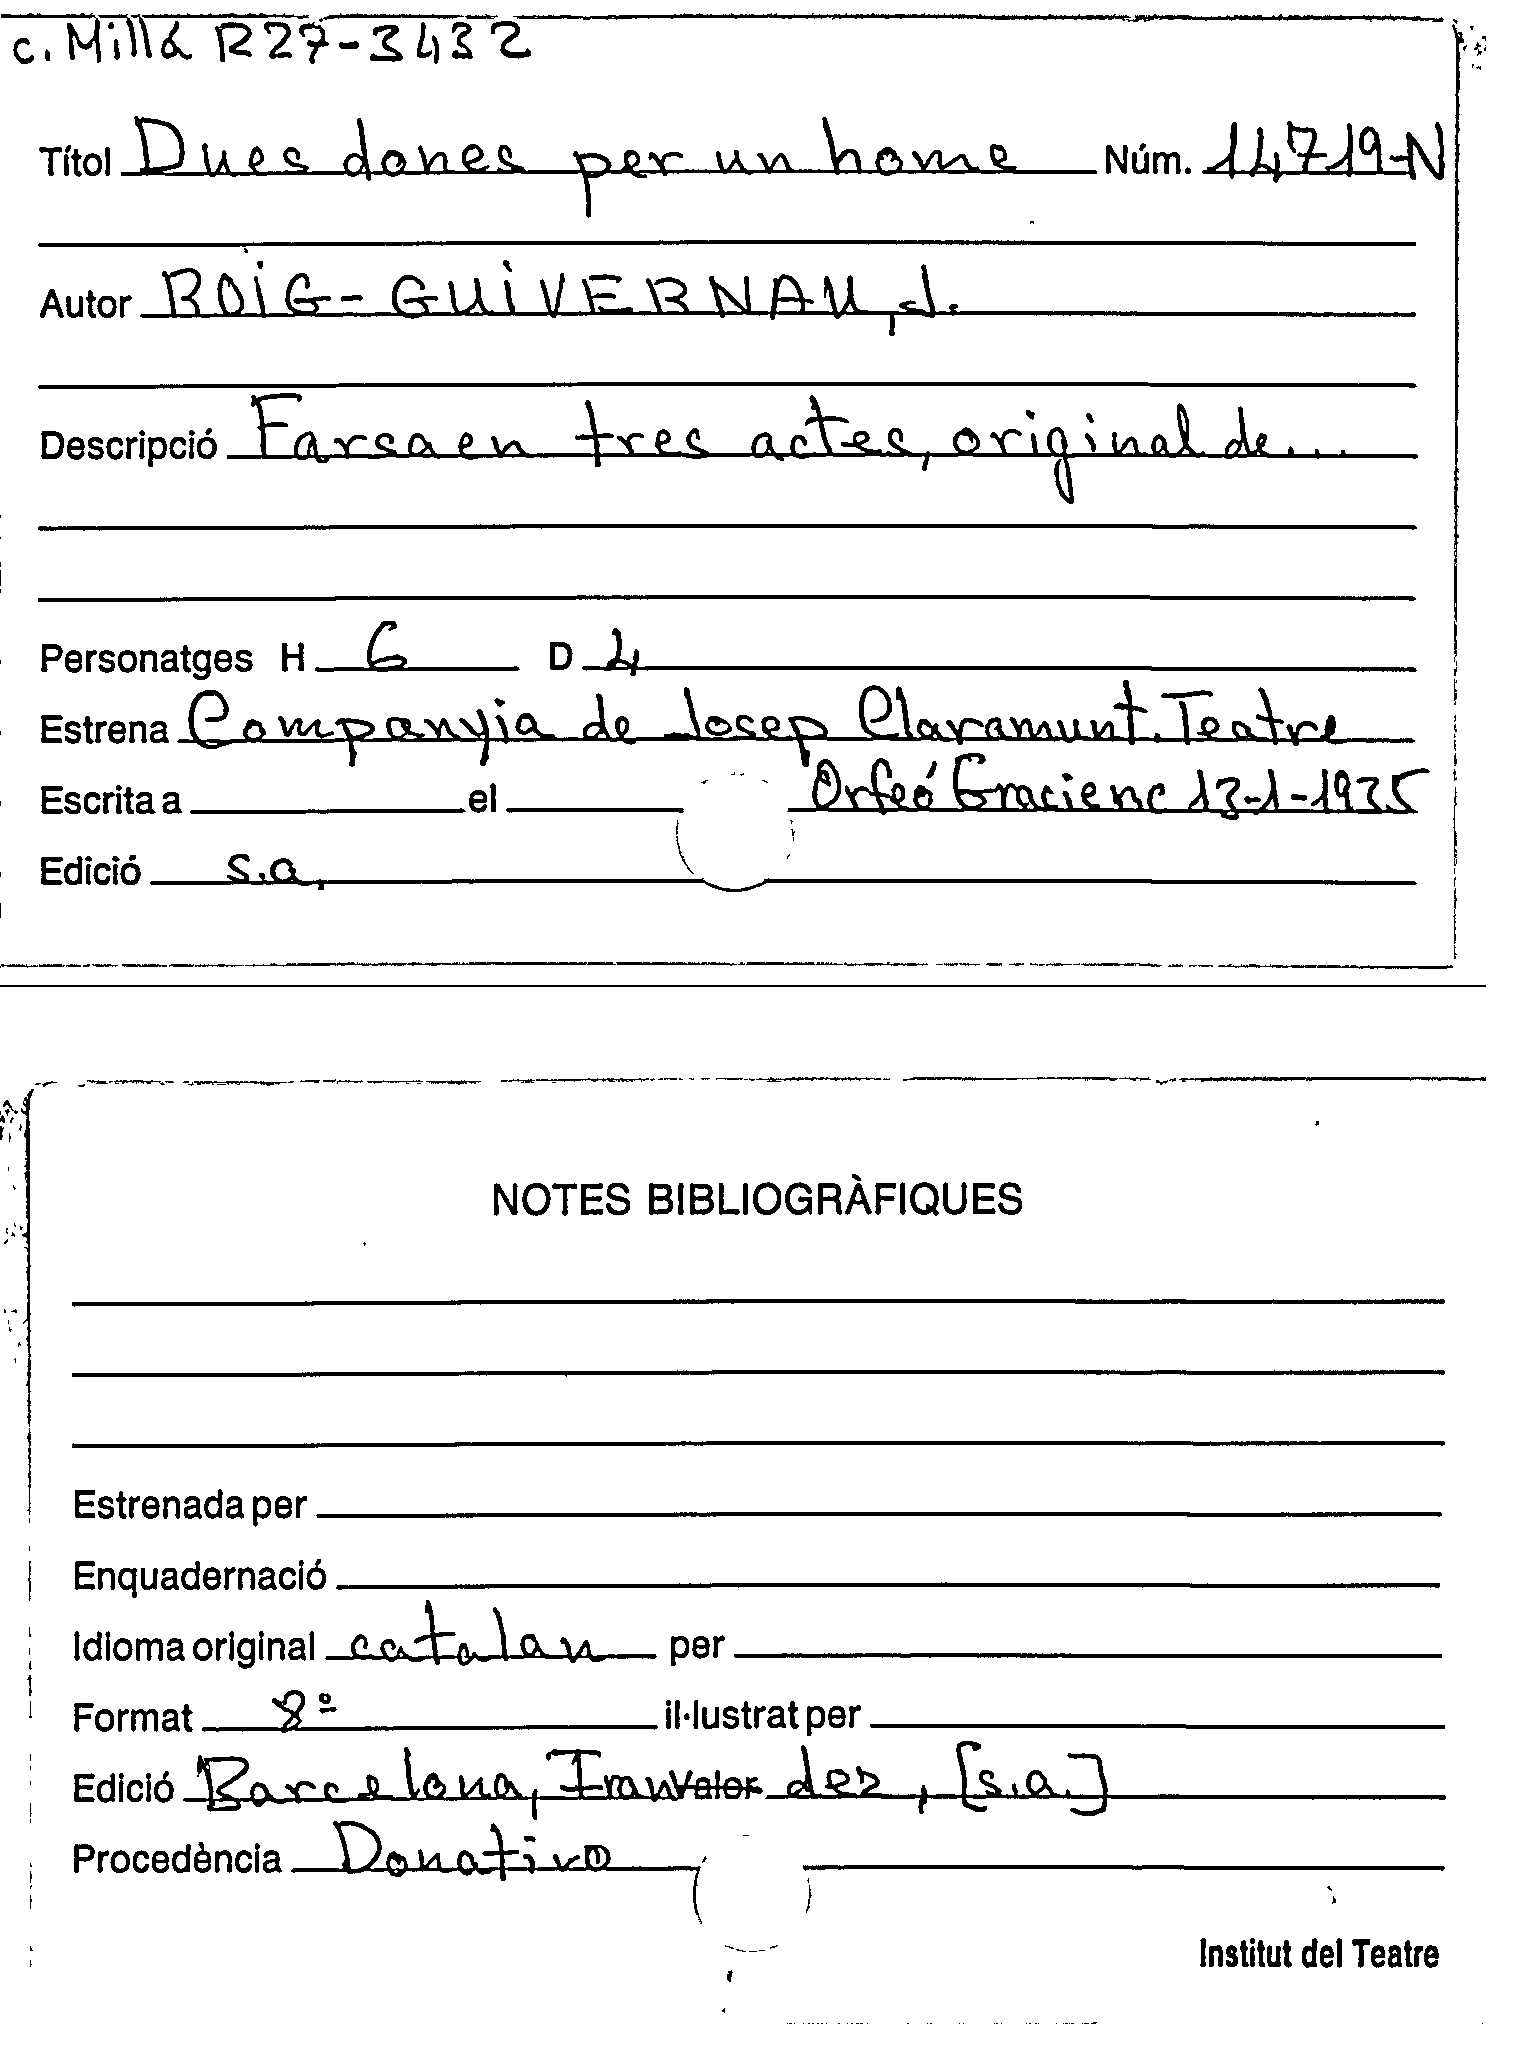 c. Millà R27-3432
Títol Dues dones per un home Núm. 14719-N
Autor ROiG-GUiVERNAU, J.
Descripció Farsa en tres actes, original de...
Personatges H 6 D 4
Estrena Companyia de Josep Claramunt. Teatre
Orfeó Gracienc 13-1-1935
Escrita a el
Edició s.a.
NOTES BIBLIOGRÀFIQUES
Estrenada per
Enquadernació
Idioma original catalan per
Format 8º il·lustrat per
Edició Barcelona, dez, [s.a.]
Procedència Donativo
Institut del Teatre